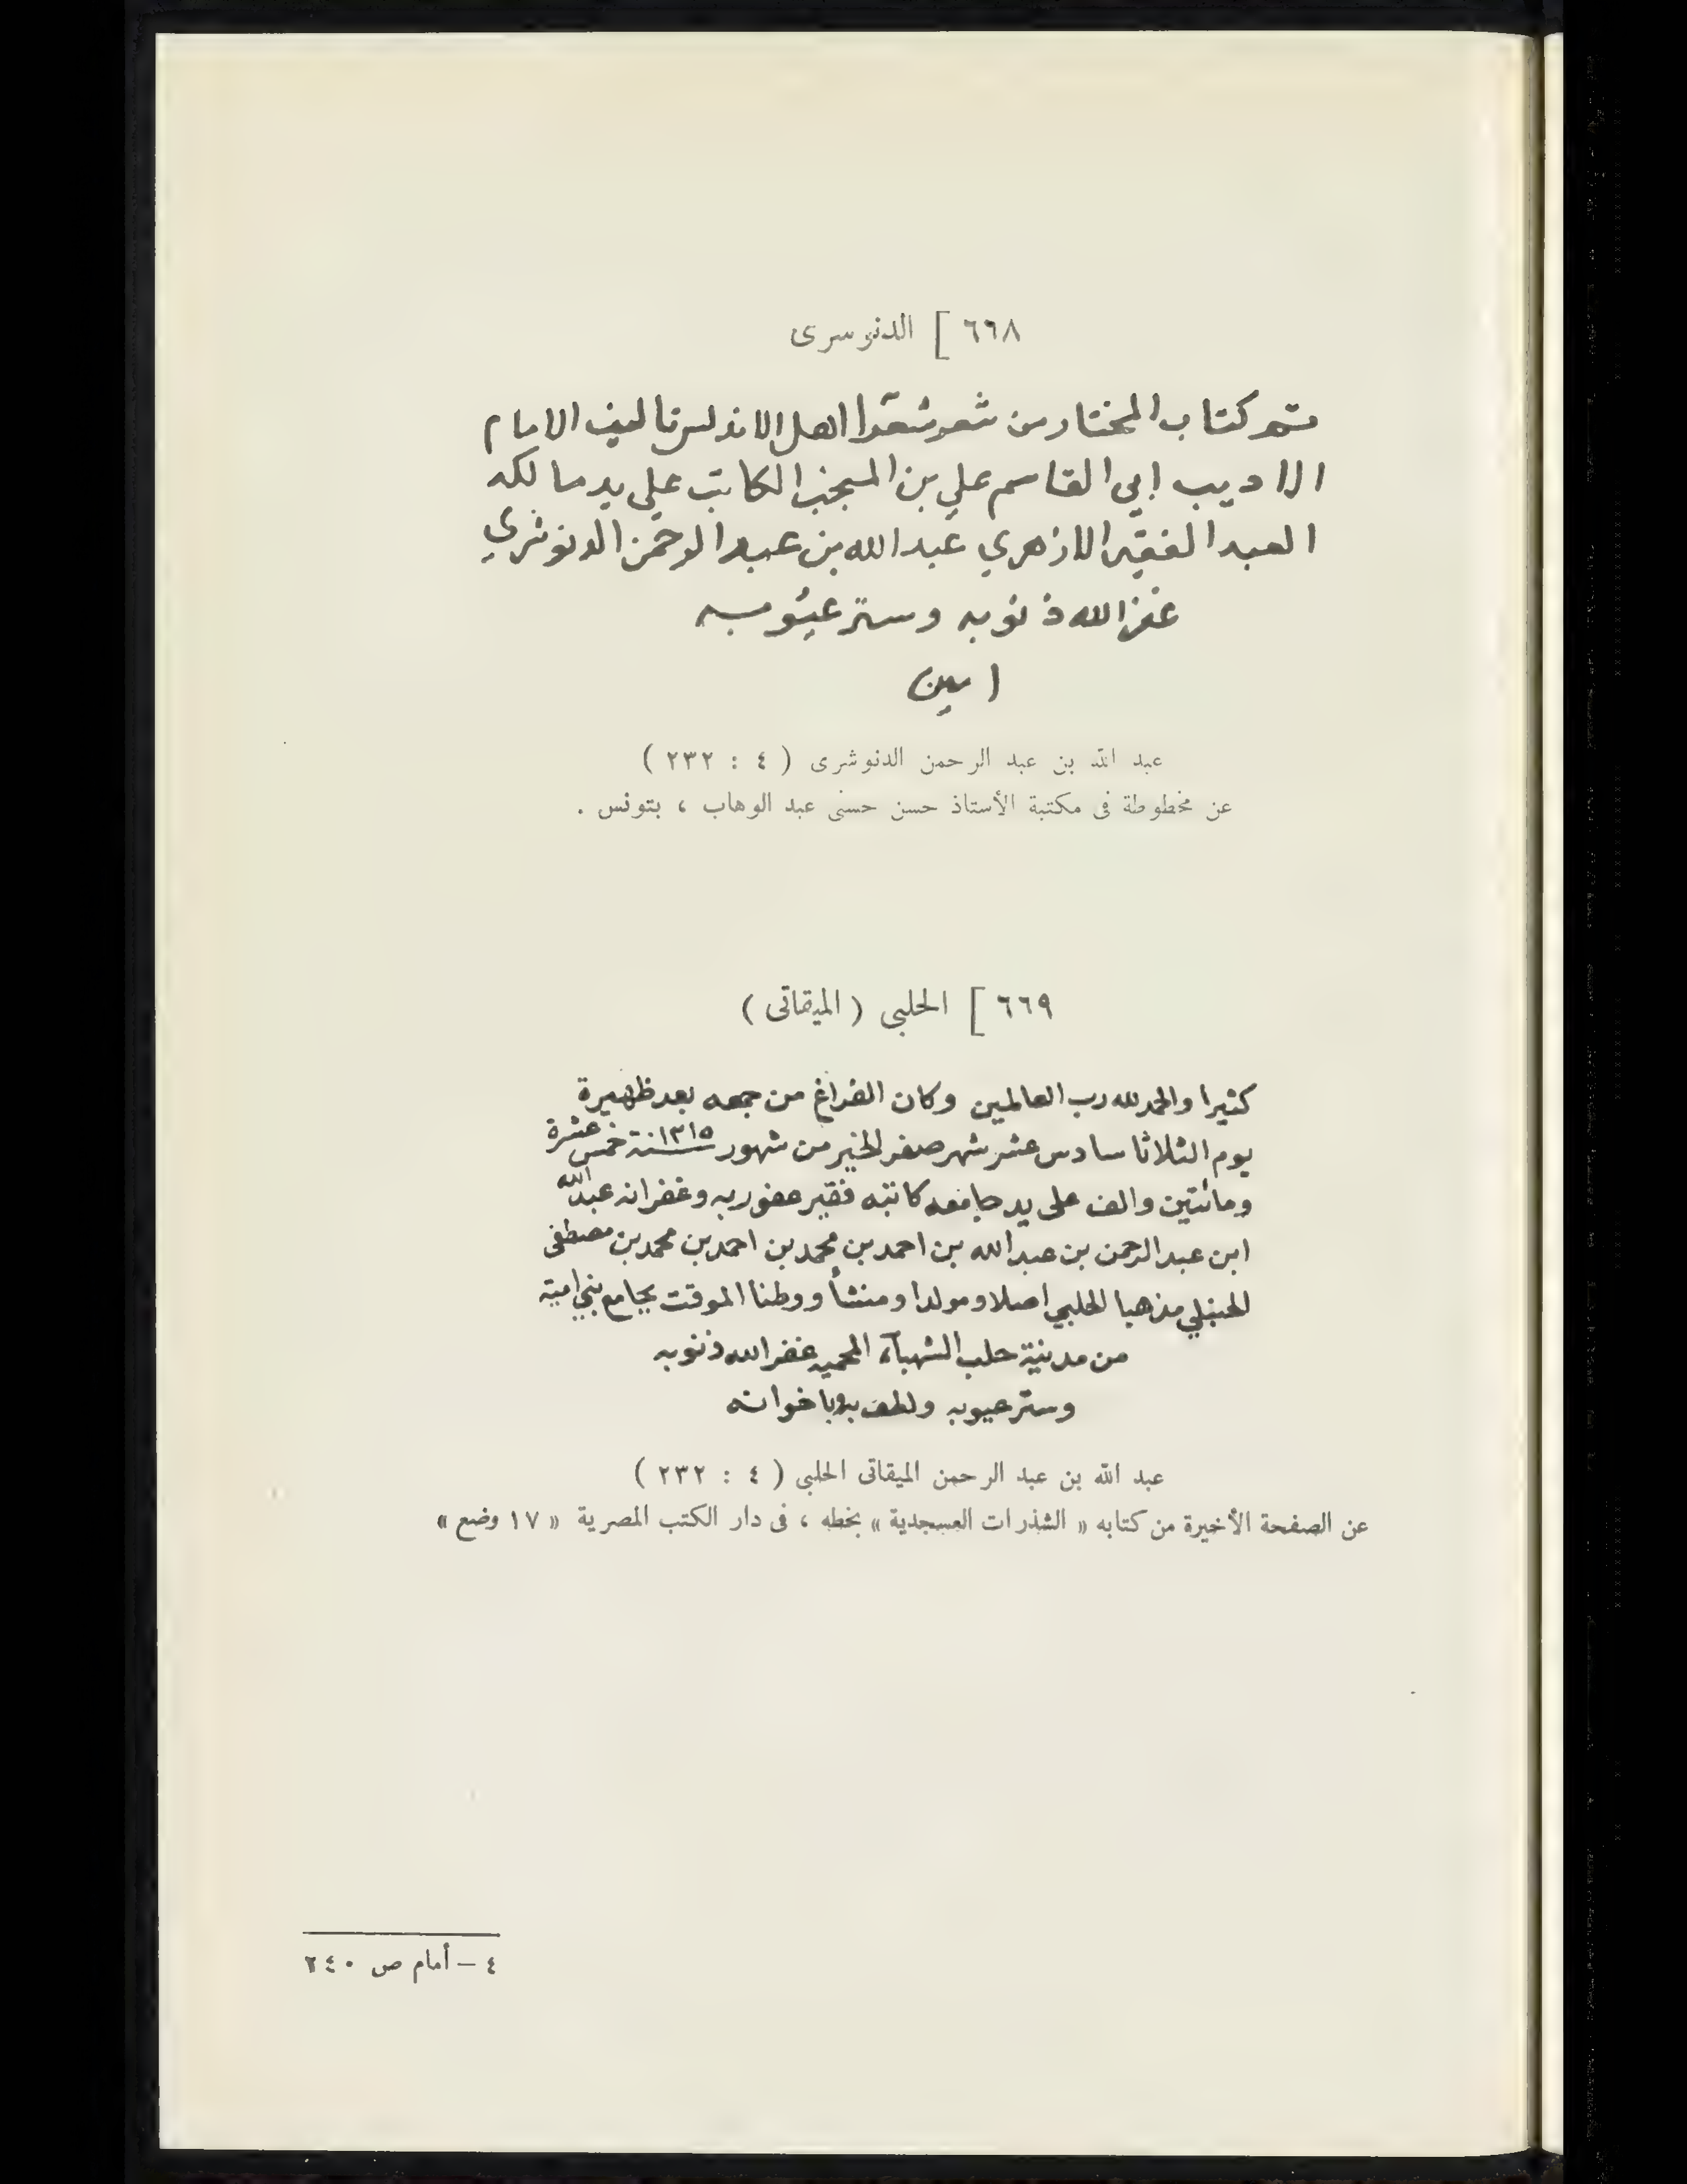 ٦٦٨ ] الدنوسرى
تم كتاب المختار من شعر شعرا اهل الاندلس تاليف الامام
الاديب ابي القاسم علي بن المنجب الكاتب علي يد مالكه
العبد الفقير الازهري عبد الله بن عبد الرحمن الدنوشري
غفر الله ذنوبه وستر عيوبه
امين
عبد الله بن عبد الرحمن الدنوشرى ( ٤ : ٢٣٢ )
عن مخطوطة فى مكتبة الأستاذ حسن حسنى عبد الوهاب ، بتونس .
٦٦٩ ] الحلبى ( الميقاتى )
كثيرا والحمد لله رب العالمين وكان الفراغ من جمعه بعد ظهيرة
يوم الثلاثا سادس عشر شهر صفر الخير من شهور سنة خمس عشرة
ومائتين والف على يد جامعه كاتبه فقير عفو ربه وغفرانه عبد الله
ابن عبد الرحمن بن عبد الله بن احمد بن محمد بن احمد بن محمد بن مصطفى
الحنبلي مذهبا الحلبي اصلا ومولدا ومنشأ ووطنا الموقت بجامع بني امية
من مدينة حلب الشهبآء المحميه غفر الله ذنوبه
وستر عيوبه ولطف به وباخوانه
عبد الله بن عبد الرحمن الميقاتى الحلبى ( ٤ : ٢٣٢ )
عن الصفحة الأخيرة من كتابه « الشذرات العسجدية » بخطه ، فى دار الكتب المصرية « ١٧ وضع »
٤ – أمام ص ٢٤٠